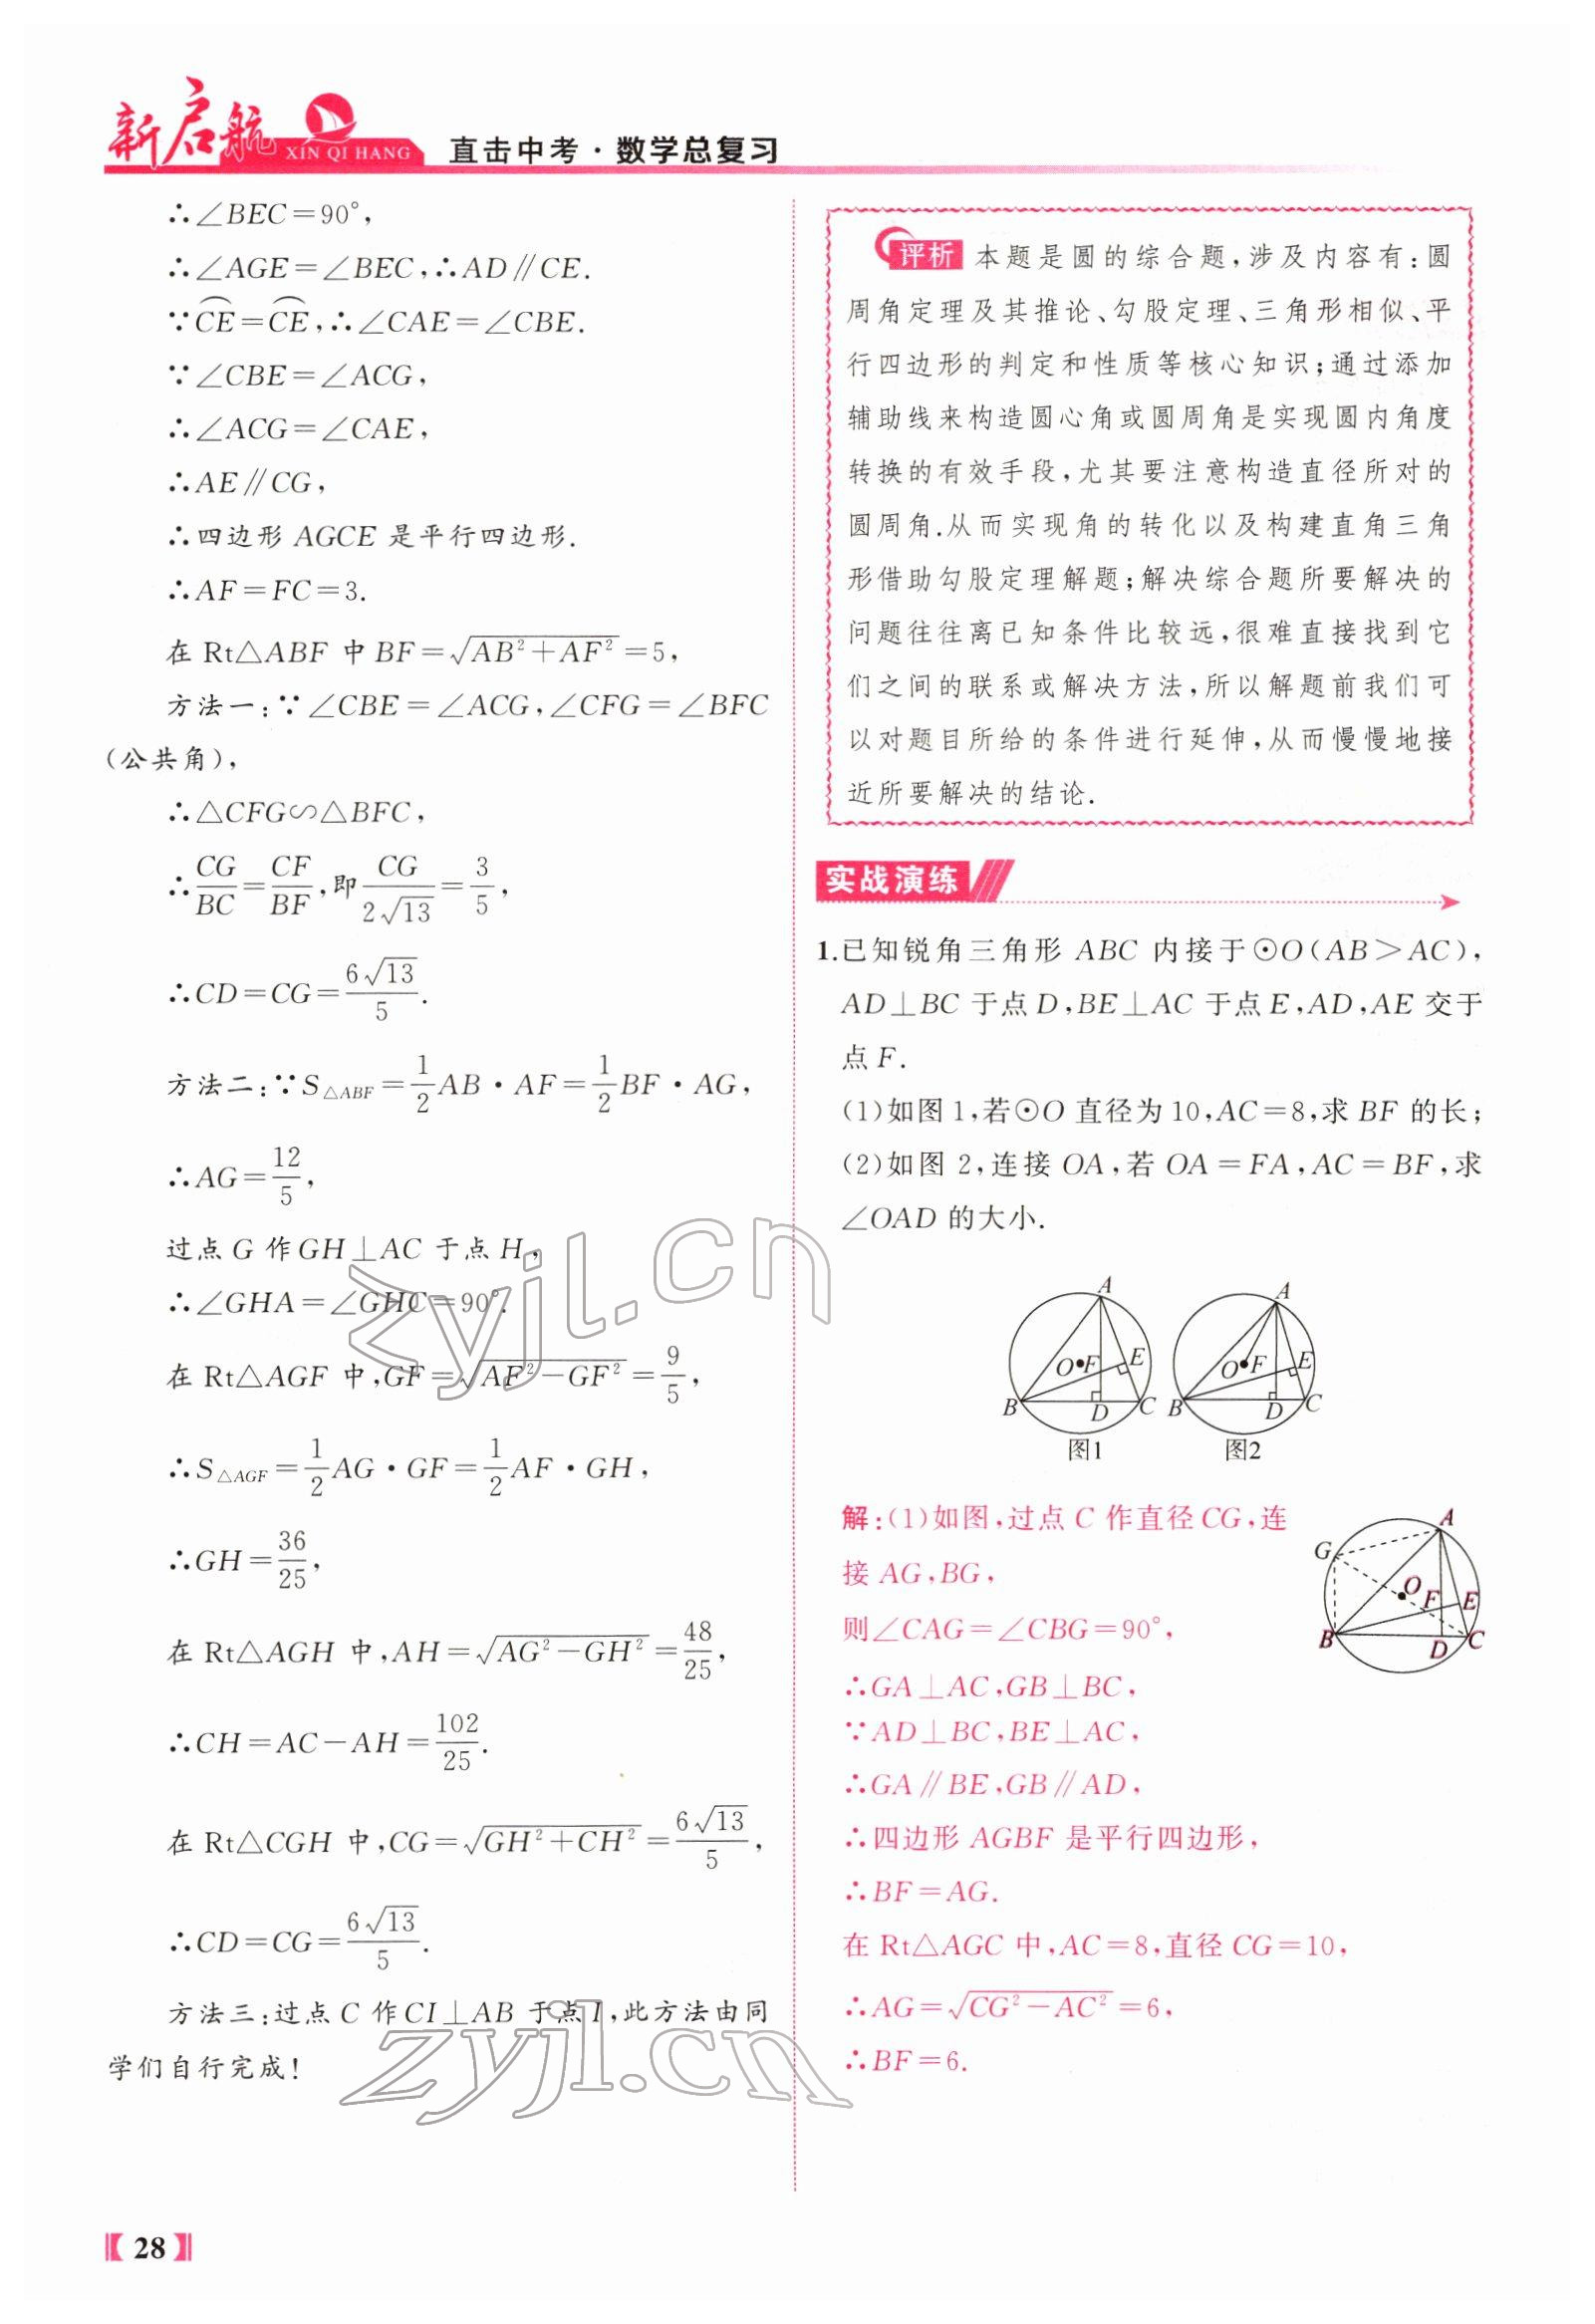 新启航
XIN QI HANG
直击中考·数学总复习
∴∠BEC=90°,
∴∠AGE=∠BEC,∴AD∥CE.
∵⌒CE=⌒CE,∴∠CAE=∠CBE.
∵∠CBE=∠ACG,
∴∠ACG=∠CAE,
∴AE∥CG,
∴四边形 AGCE 是平行四边形.
∴AF=FC=3.
在 Rt△ABF 中 BF=√(AB²+AF²)=5,
方法一:∵∠CBE=∠ACG,∠CFG=∠BFC
(公共角),
∴△CFG∽△BFC,
∴CG/BC=CF/BF,即CG/(2√13)=3/5,
∴CD=CG=6√13/5.
方法二:∵S△ABF=1/2AB·AF=1/2BF·AG,
∴AG=12/5,
过点 G 作 GH⊥AC 于点 H,
∴∠GHA=∠GHC=90°.
在 Rt△AGF 中,GF=√(AF²-GF²)=9/5,
∴S△AGF=1/2AG·GF=1/2AF·GH,
∴GH=36/25,
在 Rt△AGH 中,AH=√(AG²-GH²)=48/25,
∴CH=AC-AH=102/25.
在 Rt△CGH 中,CG=√(GH²+CH²)=6√13/5,
∴CD=CG=6√13/5.
方法三:过点 C 作 CI⊥AB 于点 I,此方法由同
学们自行完成!
评析 本题是圆的综合题,涉及内容有:圆
周角定理及其推论、勾股定理、三角形相似、平
行四边形的判定和性质等核心知识;通过添加
辅助线来构造圆心角或圆周角是实现圆内角度
转换的有效手段,尤其要注意构造直径所对的
圆周角.从而实现角的转化以及构建直角三角
形借助勾股定理解题;解决综合题所要解决的
问题往往离已知条件比较远,很难直接找到它
们之间的联系或解决方法,所以解题前我们可
以对题目所给的条件进行延伸,从而慢慢地接
近所要解决的结论.
实战演练
1.已知锐角三角形 ABC 内接于⊙O(AB>AC),
AD⊥BC 于点 D,BE⊥AC 于点 E,AD,AE 交于
点 F.
(1)如图 1,若⊙O 直径为 10,AC=8,求 BF 的长;
(2)如图 2,连接 OA,若 OA=FA,AC=BF,求
∠OAD 的大小.
A
O
F
E
B
D
C
图1
A
O
F
E
B
D
C
图2
解:(1)如图,过点 C 作直径 CG,连
接 AG,BG,
则∠CAG=∠CBG=90°,
∴GA⊥AC,GB⊥BC,
∵AD⊥BC,BE⊥AC,
∴GA∥BE,GB∥AD,
∴四边形 AGBF 是平行四边形,
∴BF=AG.
在 Rt△AGC 中,AC=8,直径 CG=10,
∴AG=√(CG²-AC²)=6,
∴BF=6.
A
G
O
F
E
B
D
C
zyjl.cn
zyjl.cn
28